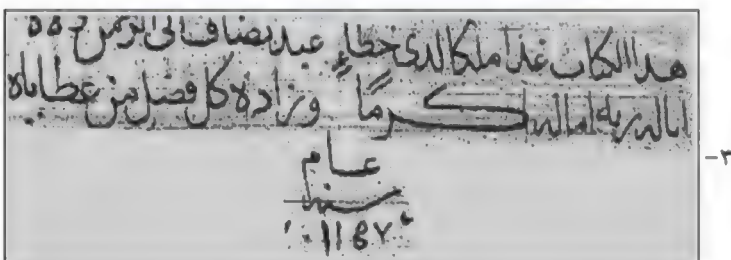 هذا الكتاب غدا ملكا لذى خطاء عبد يضاف الى الرحمن
اناله ربه اماله كرماً وزاده كل فضل من عطاياه
عام
سنة
٣-